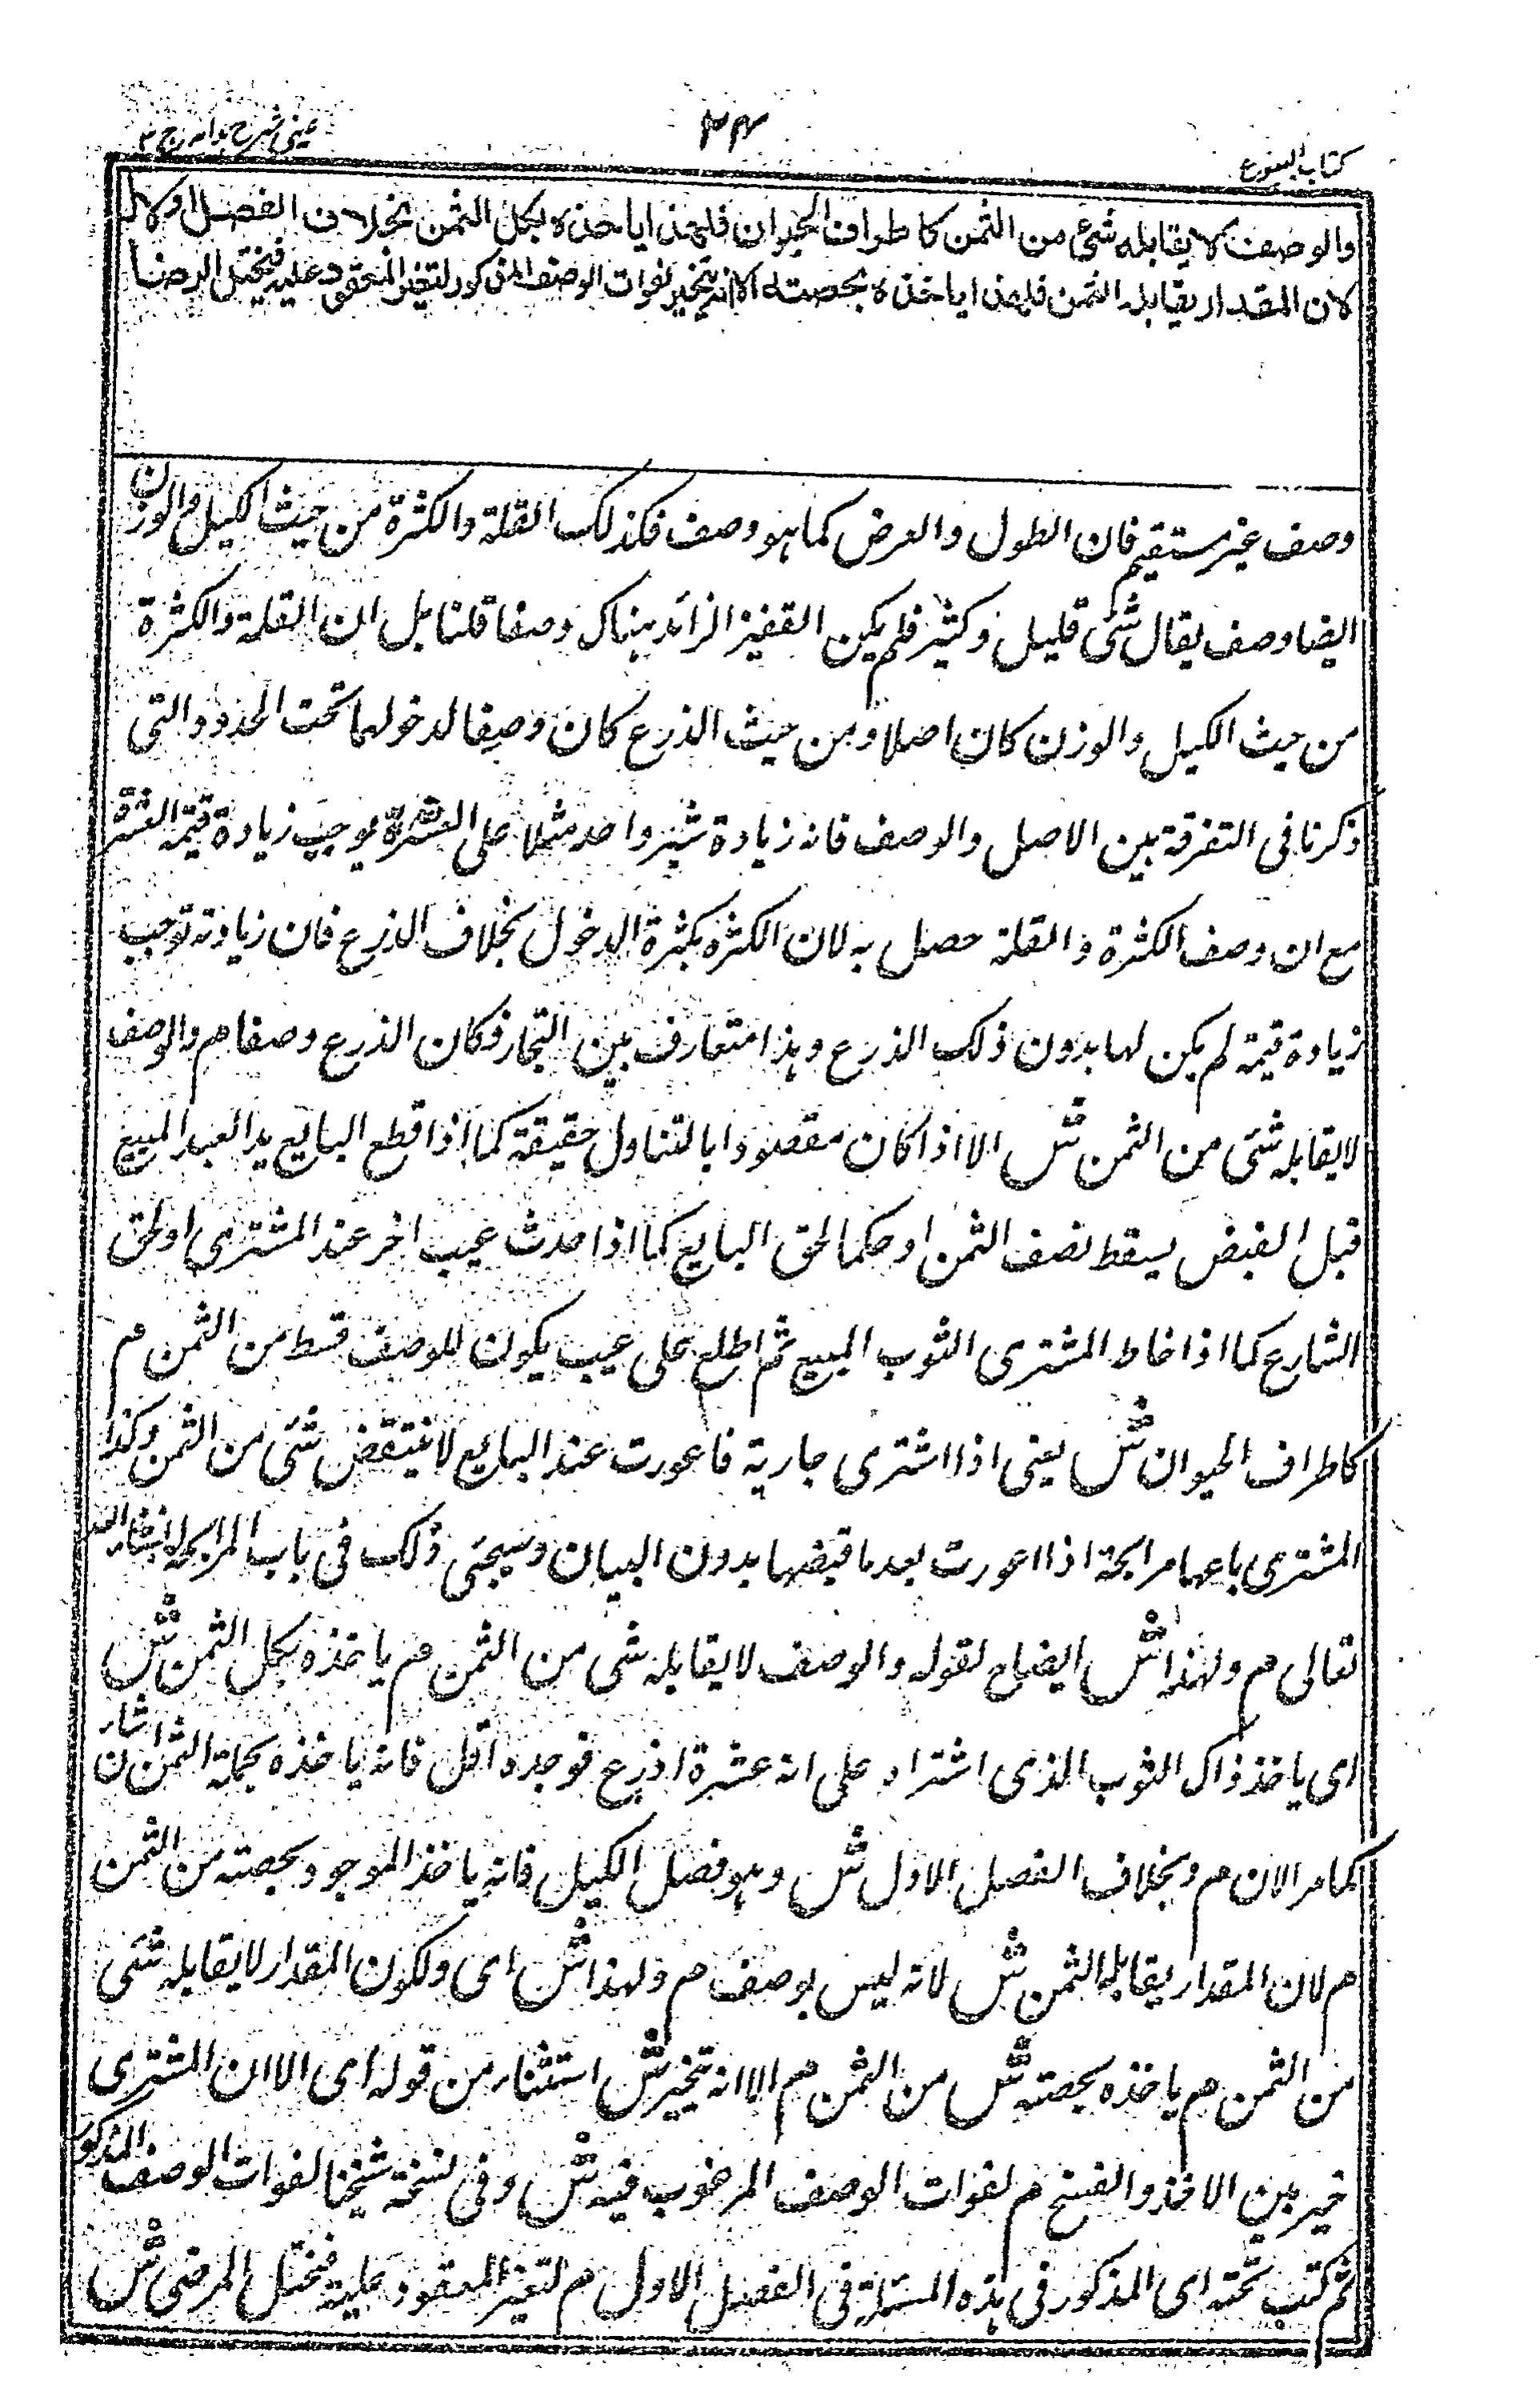 كتاب البيوع
٣٤
عينى شرح هدايه ج ٣
والوصف لا يقابله شئ من الثمن كاطراف الحيوان فلهذا ياخذه بكل الثمن بخلاف الفصل الاول
لان المقدار يقابله الثمن فلهذا ياخذه بحصته الا انه يتخير لفوات الوصف المذكور لتغير المعقود عليه فيختل الرضا
وصف غير مستقيم فان الطول والعرض كما هو وصف فكذلك القلة والكثرة من حيث الكيل والوزن
ايضا وصف يقال شئ قليل وكثير فلم يكن القفيز الزائد هناك وصفا قلنا بل ان القلة والكثرة
من حيث الكيل والوزن كان اصلا ومن حيث الذرع كان وصفا لدخولهما تحت الحدود والتى
ذكرنا فى التفرقة بين الاصل والوصف فانه زيادة شبر واحد مثلا على العشرة يوجب زيادة قيمة العشرة
مع ان وصف الكثرة والقلة حصل به لان الكثرة بكثرة الدخول بخلاف الذرع فان زيادته توجب
زيادة قيمة لم يكن لها بدون ذلك الذرع وهذا متعارف بين التجار فكان الذرع وصفا م والوصف
لا يقابله شئ من الثمن ش الا اذا كان مقصودا بالتناول حقيقة كما اذا قطع البايع يد العبد المبيع
قبل القبض يسقط نصف الثمن او حكما لحق البايع كما اذا حدث عيب اخر عند المشترى او لحق
الشارع كما اذا خاط المشترى الثوب المبيع ثم اطلع على عيب يكون للوصف قسط من الثمن م
كاطراف الحيوان ش يعنى اذا اشترى جارية فاعورت عند البايع لا ينتقض شئ من الثمن وكذا
المشترى باعها مرابحة اذا اعورت بعد ما قبضها بدون البيان وسيجئ ذلك فى باب المرابحة انشاء الله
تعالى م ولهذا ش ايضاح لقوله والوصف لا يقابله شئ من الثمن م ياخذه بكل الثمن ش
اى ياخذ ذاك الثوب الذى اشتراه على انه عشرة اذرع فوجده اقل فانه ياخذه بجملة الثمن ان شاء
كما مر الان م وبخلاف الفصل الاول ش وهو فصل الكيل فانه ياخذ الموجود بحصته من الثمن
م لان المقدار يقابله الثمن ش لانه ليس بوصف م ولهذا ش اى ولكون المقدار لا يقابله شئ
من الثمن م ياخذه بحصته ش من الثمن م الا انه يتخير ش استثناء من قوله اى الا ان المشترى
خير بين الاخذ والفسخ م لفوات الوصف المرغوب فيه ش وفى نسخة شيخنا لفوات الوصف المذكور
ثم كتب تحته اى المذكور فى هذه المسئلة فى الفصل الاول م لتغير المعقود عليه فيختل الرضى ش